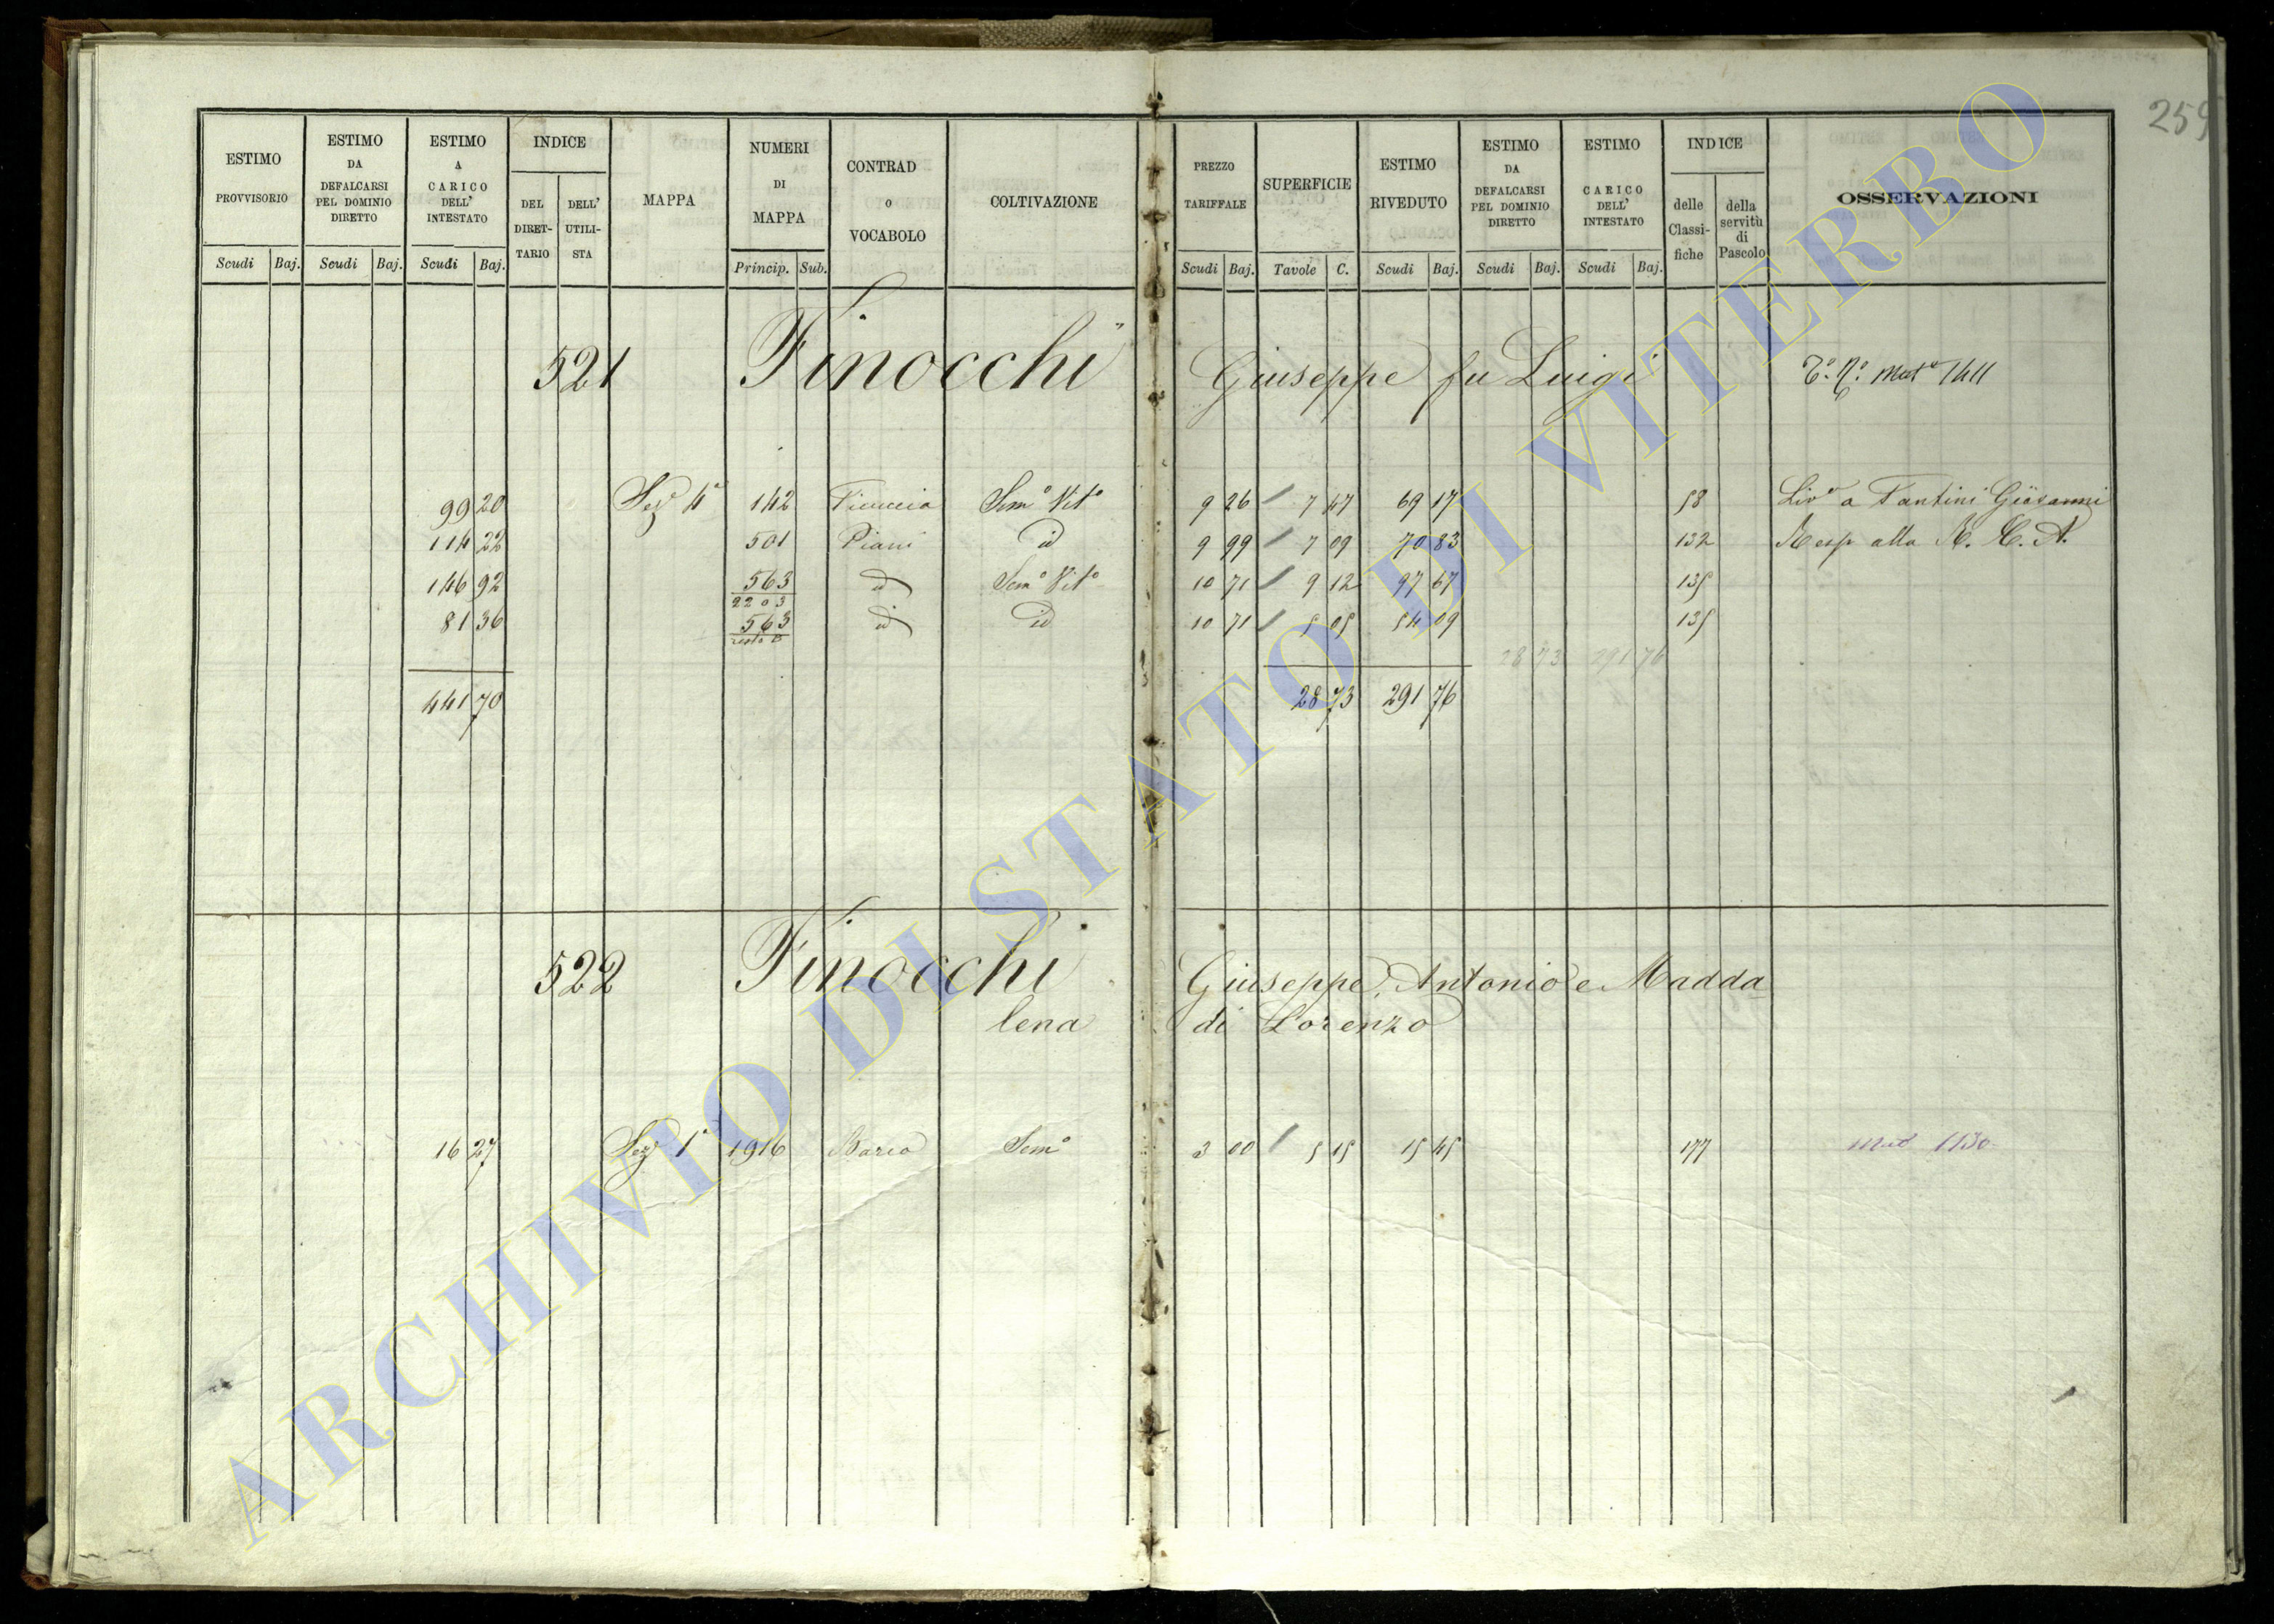 259
ESTIMO PROVVISORIO
ESTIMO DA DEFALCARSI PEL DOMINIO DIRETTO
ESTIMO A CARICO DELL' INTESTATO
INDICE
DEL DIRET-TARIO
DELL' UTILI-STA
MAPPA
NUMERI DI MAPPA
CONTRAD O VOCABOLO
COLTIVAZIONE
PREZZO TARIFFALE
SUPERFICIE
ESTIMO RIVEDUTO
ESTIMO DA DEFALCARSI PEL DOMINIO DIRETTO
ESTIMO CARICO DELL' INTESTATO
INDICE
delle Classi-fiche
della servitù di Pascolo
OSSERVAZIONI
Scudi Baj. Scudi Baj. Scudi Baj. Princip. Sub. Scudi Baj. Tavole C. Scudi Baj. Scudi Baj. Scudi Baj.
521 Finocchi Giuseppe fu Luigi Mat 1411
99 20 Sez 4ª 142 Sem° Vit° 9 26 7 47 69 17 58 Liv° a Fantini Giovanni
114 22 501 Piani id 9 99 7 09 70 83 132 Resp alla R. C. A.
146 92 563 id Sem° Vit° 10 71 9 12 97 67 135
2203
81 36 563 id id 10 71 5 05 54 09 135
resto B
28 73 291 76
441 70 28 73 291 76
522 Finocchi Giuseppe, Antonio e Madda
lena di Lorenzo
16 27 Sez 1ª 1916 Sem° 3 00 5 15 15 45 177
ARCHIVIO DI STATO DI VITERBO